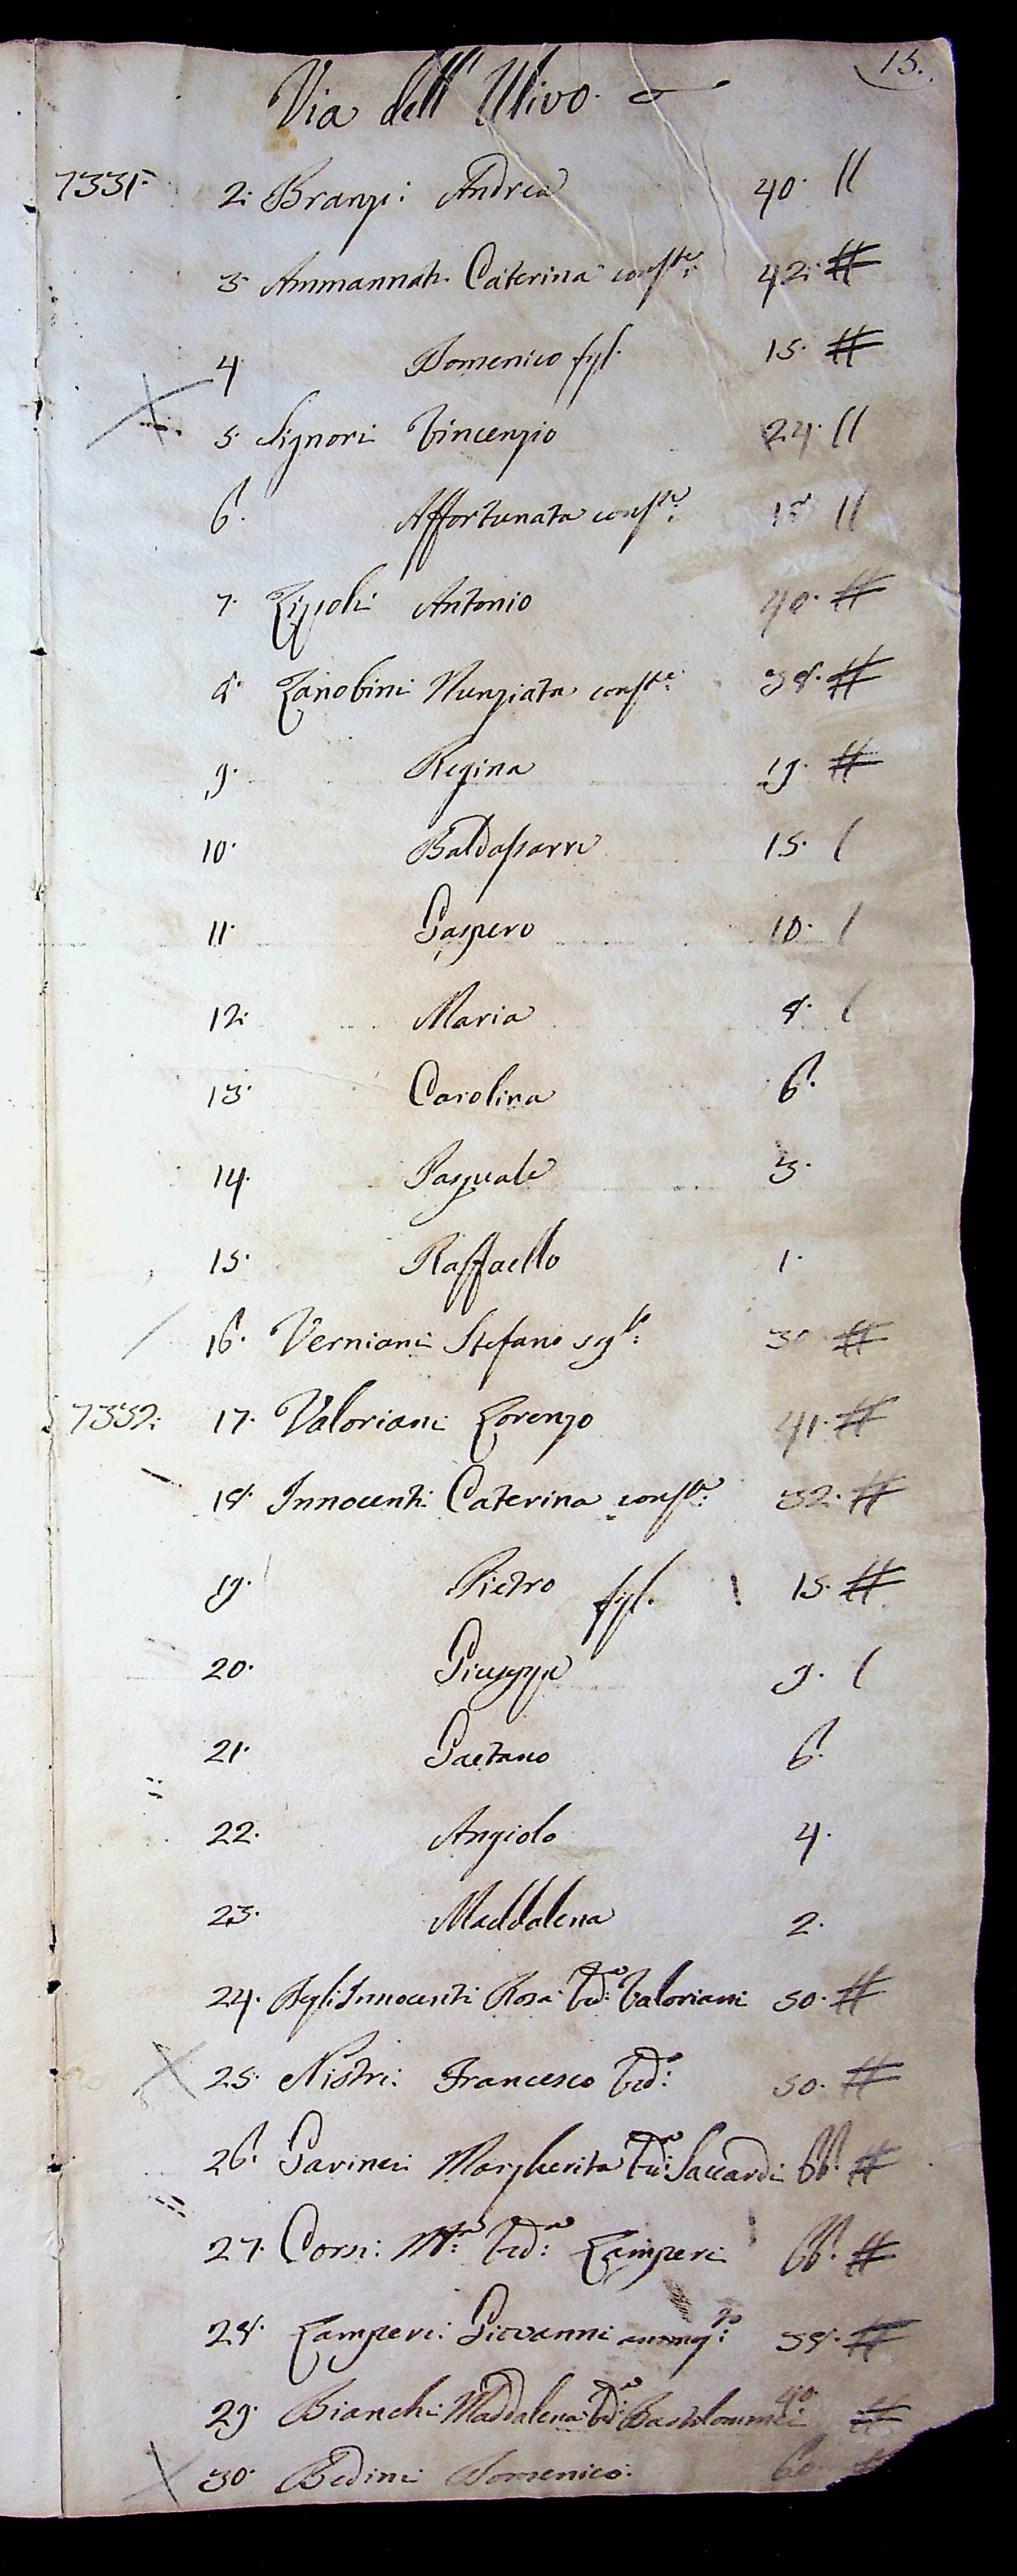 15.
Via dell' Ulivo
7331. 2. Branzi: Andrea 40. //
3 Ammannati. Caterina conste: 42. #
4 Domenico fgl. 15. #
5. Signori Vincenzio 24. //
6. Affortunata conste: 15 //
7. Zipoli Antonio 40. #
8. Zanobini Nunziata conste: 38. #
9. Regina 19. #
10. Baldassarre 15. /
11. Gaspero 10. /
12: Maria 8. /
13. Carolina 6.
14. Pasquale 3.
15. Raffaello 1.
16. Verniani Stefano #
7332: 17. Valoriani Lorenzo 41. #
18. Innocenti Caterina conste: 32. #
19. Pietro fgl. 15. #
20. Giuseppe 9. /
21. Gaetano 6.
22. Angiolo 4.
23. Maddalena 2.
24. Degl'Innocenti Rosa Vda: Valoriani 50. #
25. Nistri: Francesco Vdo: 50. #
26. Gavineri Margherita Vda: Saccardi 66. #
27. Corsi: Ma: Vda: Lamperi 66. #
28. Lamperi: Giovanni ammogto: 38. #
29. Bianchi Maddalena Vda: Bartolommei 40. #
30. Bedini Domenico. 60 #